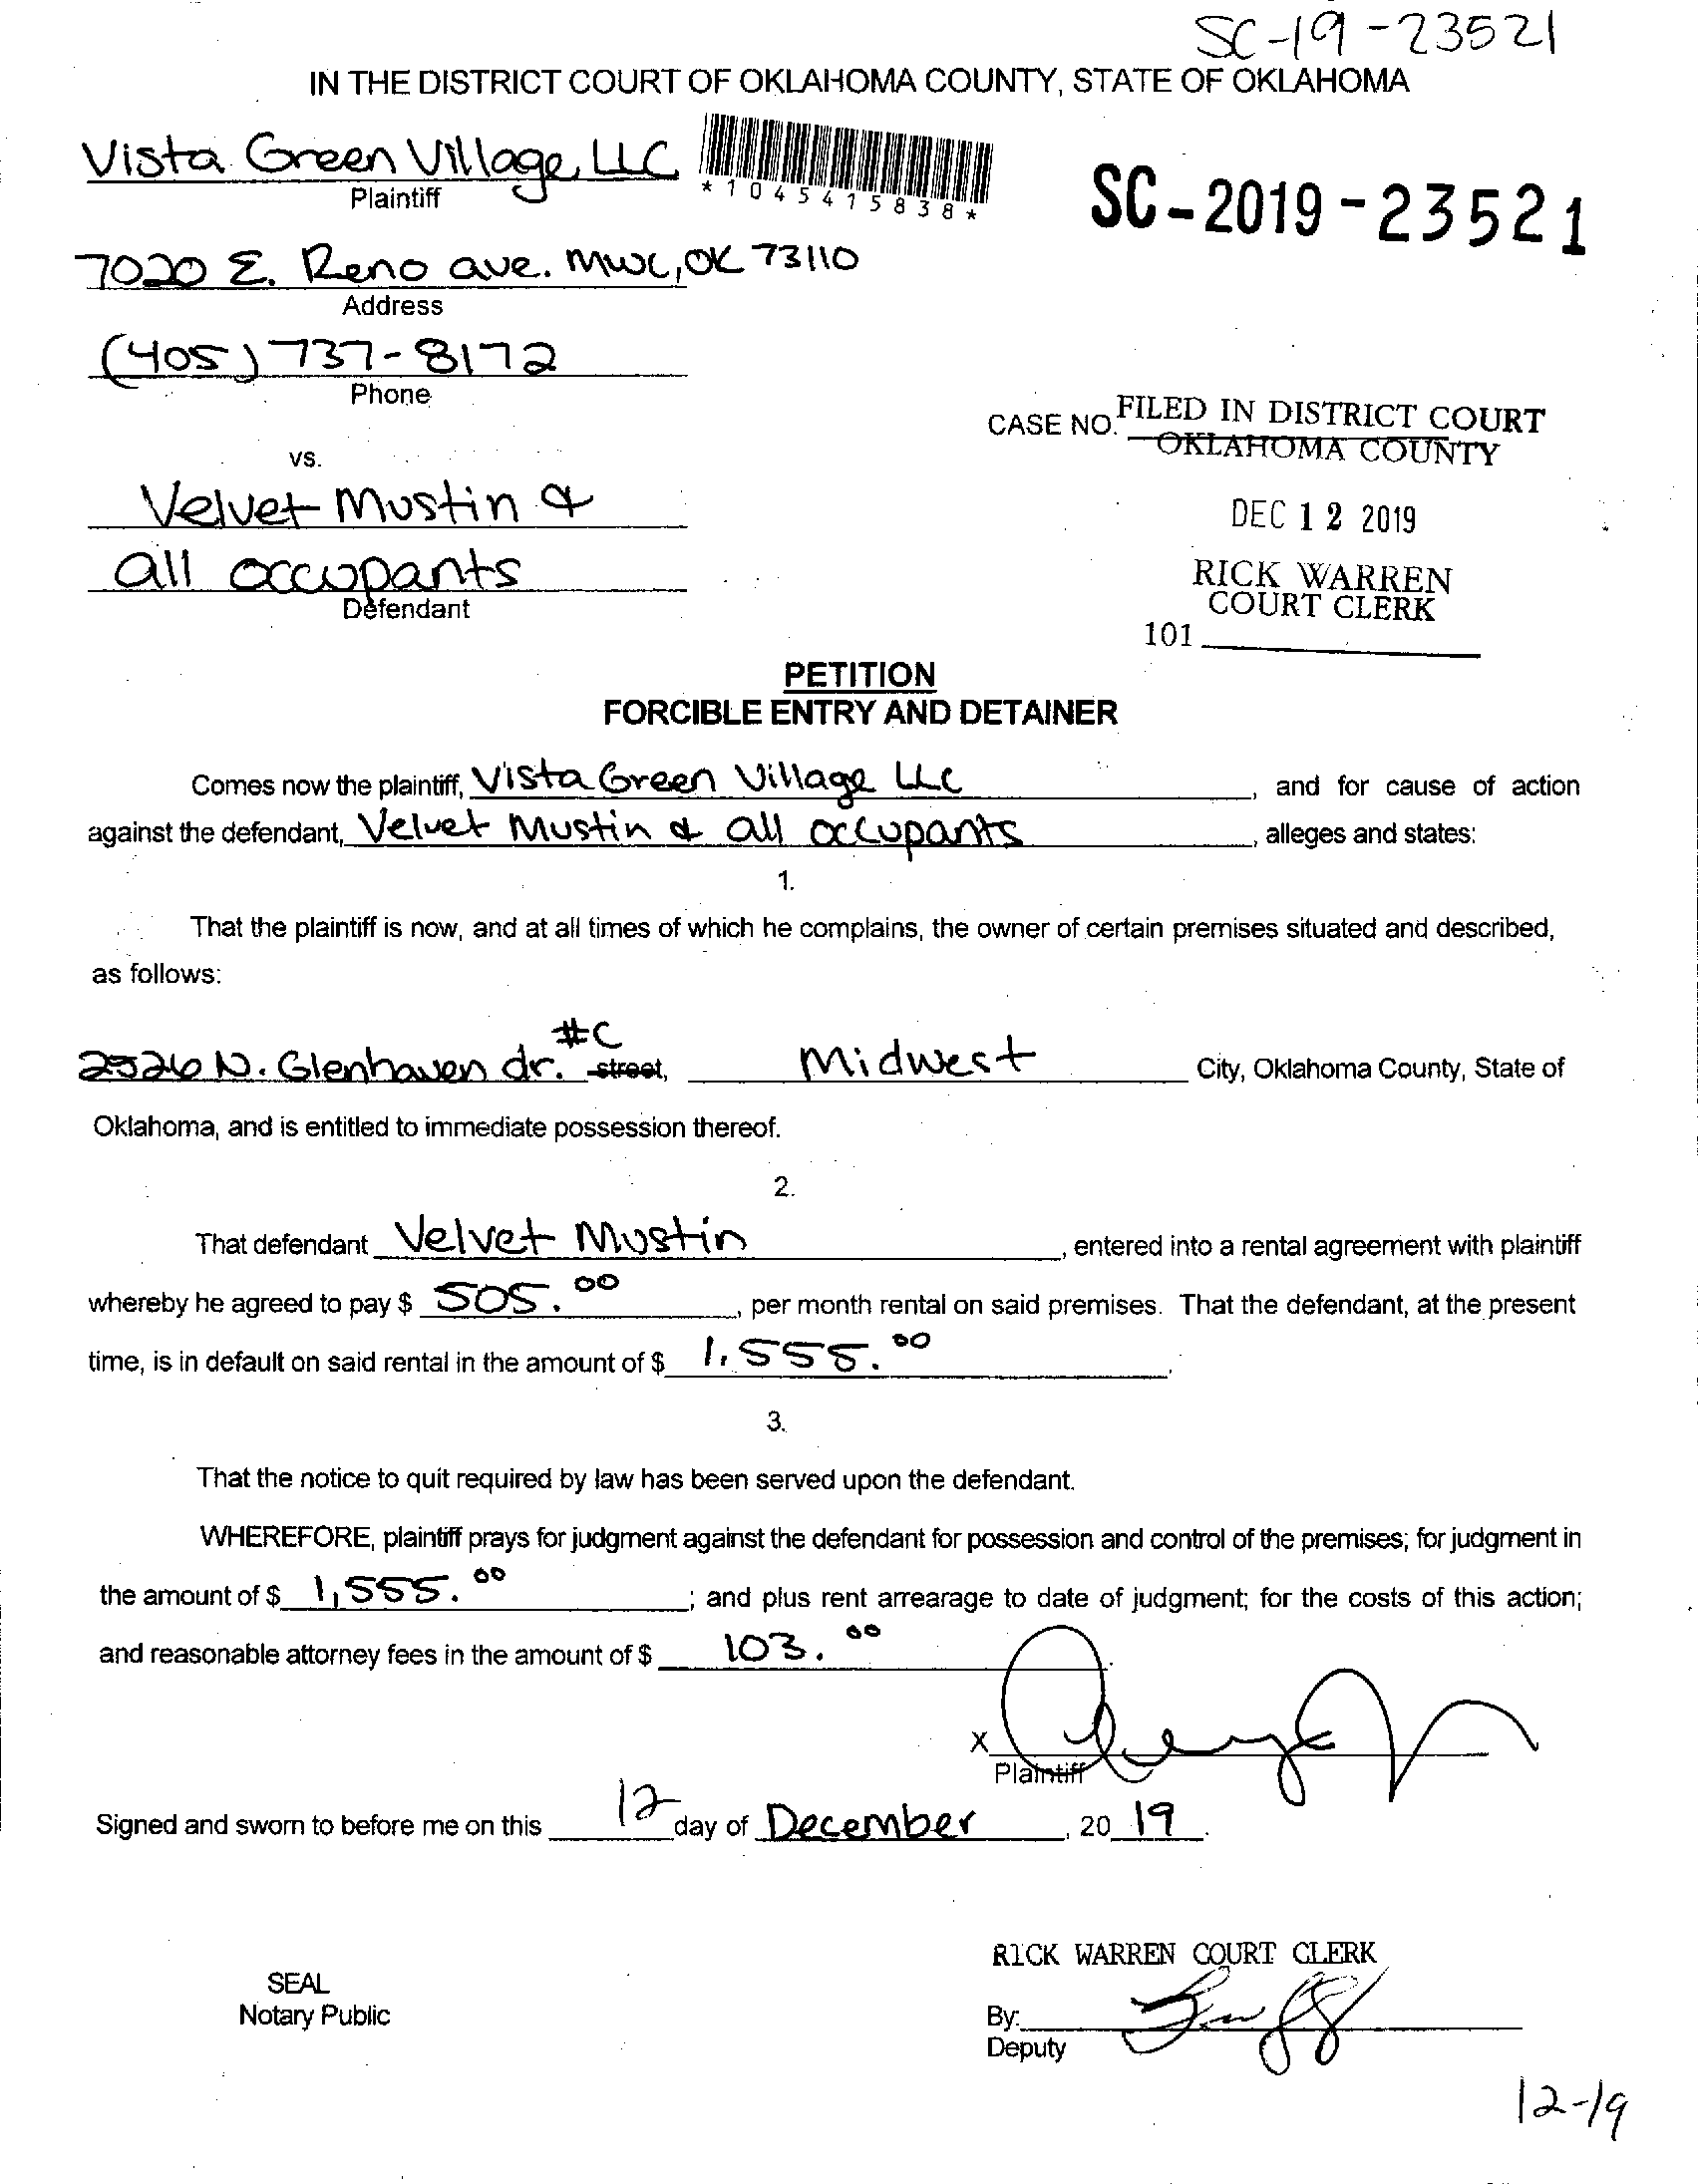 SC-19-23521
IN THE DISTRICT COURT OF OKLAHOMA COUNTY, STATE OF OKLAHOMA
Vista Green Village, LLC
Plaintiff
*1045415838*
SC-2019-23521
7020 E. Reno ave. MWC, OK 73110
Address
(405) 737-8172
Phone
CASE NO. FILED IN DISTRICT COURT
OKLAHOMA COUNTY
vs.
Velvet Mustin &
all occupants
Defendant
DEC 12 2019
RICK WARREN
COURT CLERK
101
PETITION
FORCIBLE ENTRY AND DETAINER
Comes now the plaintiff, Vista Green Village LLC, and for cause of action
against the defendant, Velvet Mustin & all occupants, alleges and states:
1.
That the plaintiff is now, and at all times of which he complains, the owner of certain premises situated and described,
as follows:
#C
2526 N. Glenhaven dr. street, Midwest City, Oklahoma County, State of
Oklahoma, and is entitled to immediate possession thereof.
2.
That defendant Velvet Mustin, entered into a rental agreement with plaintiff
whereby he agreed to pay $ 505.00, per month rental on said premises. That the defendant, at the present
time, is in default on said rental in the amount of $ 1,555.00.
3.
That the notice to quit required by law has been served upon the defendant.
WHEREFORE, plaintiff prays for judgment against the defendant for possession and control of the premises; for judgment in
the amount of $ 1,555.00; and plus rent arrearage to date of judgment; for the costs of this action;
and reasonable attorney fees in the amount of $ 103.00
X
Plaintiff
Signed and sworn to before me on this 12 day of December, 20 19.
RICK WARREN COURT CLERK
SEAL
Notary Public
By:
Deputy
12-19